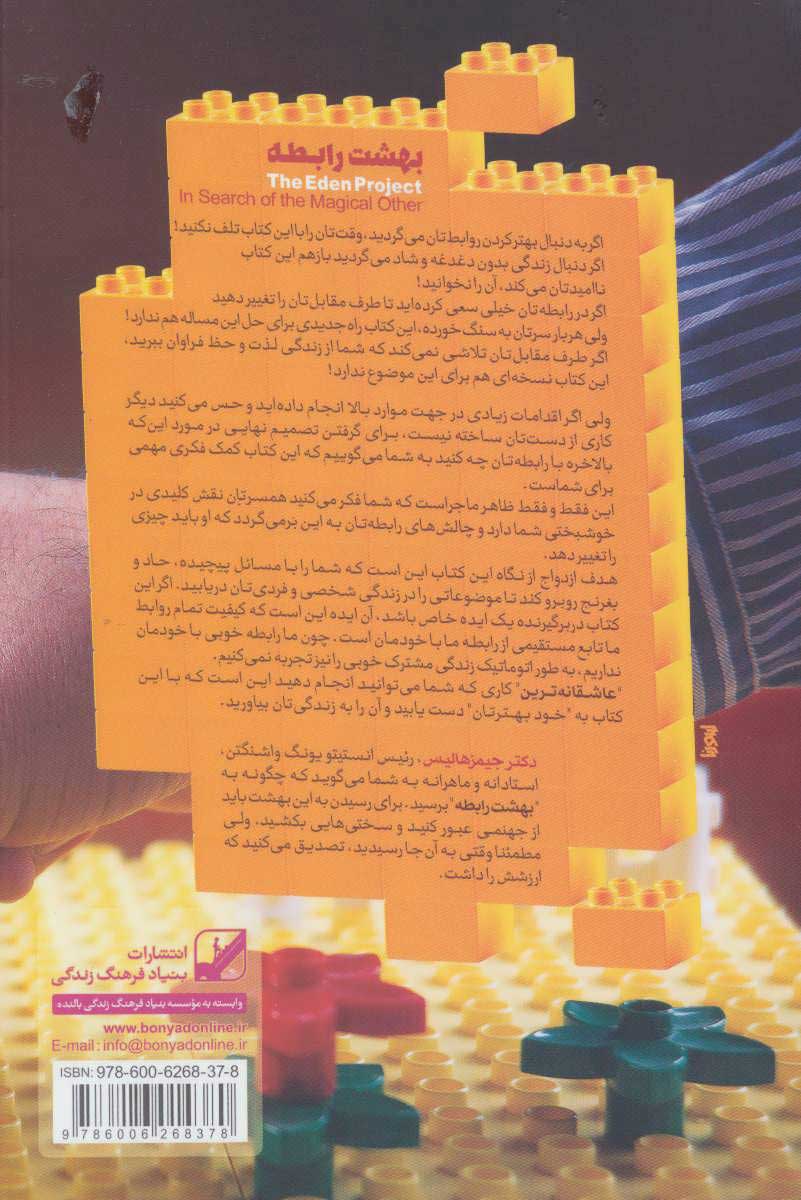 بهشت رابطه
The Eden Project
In Search of the Magical Other
اگر به دنبال بهتر کردن روابط‌تان می‌گردید، وقت‌تان را با این کتاب تلف نکنید!
اگر دنبال زندگی بدون دغدغه و شاد می‌گردید بازهم این کتاب
ناامیدتان می‌کند، آن را نخوانید!
اگر در رابطه‌تان خیلی سعی کرده‌اید تا طرف مقابل‌تان را تغییر دهید
ولی هربار سرتان به سنگ خورده، این کتاب راه جدیدی برای حل این مساله هم ندارد!
اگر طرف مقابل‌تان تلاشی نمی‌کند که شما از زندگی لذت و حظ فراوان ببرید،
این کتاب نسخه‌ای هم برای این موضوع ندارد!
ولی اگر اقدامات زیادی در جهت موارد بالا انجام داده‌اید و حس می‌کنید دیگر
کاری از دست‌تان ساخته نیست، برای گرفتن تصمیم نهایی در مورد این‌که
بالاخره با رابطه‌تان چه کنید به شما می‌گوییم که این کتاب کمک فکری مهمی
برای شماست.
این فقط و فقط ظاهر ماجراست که شما فکر می‌کنید همسرتان نقش کلیدی در
خوشبختی شما دارد و چالش‌های رابطه‌تان به این برمی‌گردد که او باید چیزی
را تغییر دهد.
هدف ازدواج از نگاه این کتاب این است که شما را با مسائل پیچیده، حاد و
بغرنج روبرو کند تا موضوعاتی را در زندگی شخصی و فردی‌تان دریابید. اگر این
کتاب دربرگیرنده یک ایده خاص باشد، آن ایده این است که کیفیت تمام روابط
ما تابع مستقیمی از رابطه ما با خودمان است. چون ما رابطه خوبی با خودمان
نداریم، به طور اتوماتیک زندگی مشترک خوبی را نیز تجربه نمی‌کنیم.
"عاشقانه‌ترین" کاری که شما می‌توانید انجام دهید این است که با این
کتاب به "خود بهترتان" دست یابید و آن را به زندگی‌تان بیاورید.
دکتر جیمز هالیس، رئیس انستیتو یونگ واشنگتن،
استادانه و ماهرانه به شما می‌گوید که چگونه به
"بهشت رابطه" برسید. برای رسیدن به این بهشت باید
از جهنمی عبور کنید و سختی‌هایی بکشید، ولی
مطمئنا وقتی به آن‌جا رسیدید، تصدیق می‌کنید که
ارزشش را داشت.
انتشارات
بنیاد فرهنگ زندگی
وابسته به مؤسسه بنیاد فرهنگ زندگی بالنده
www.bonyadonline.ir
E-mail: info@bonyadonline.ir
ISBN: 978-600-6268-37-8
9 786006 268378